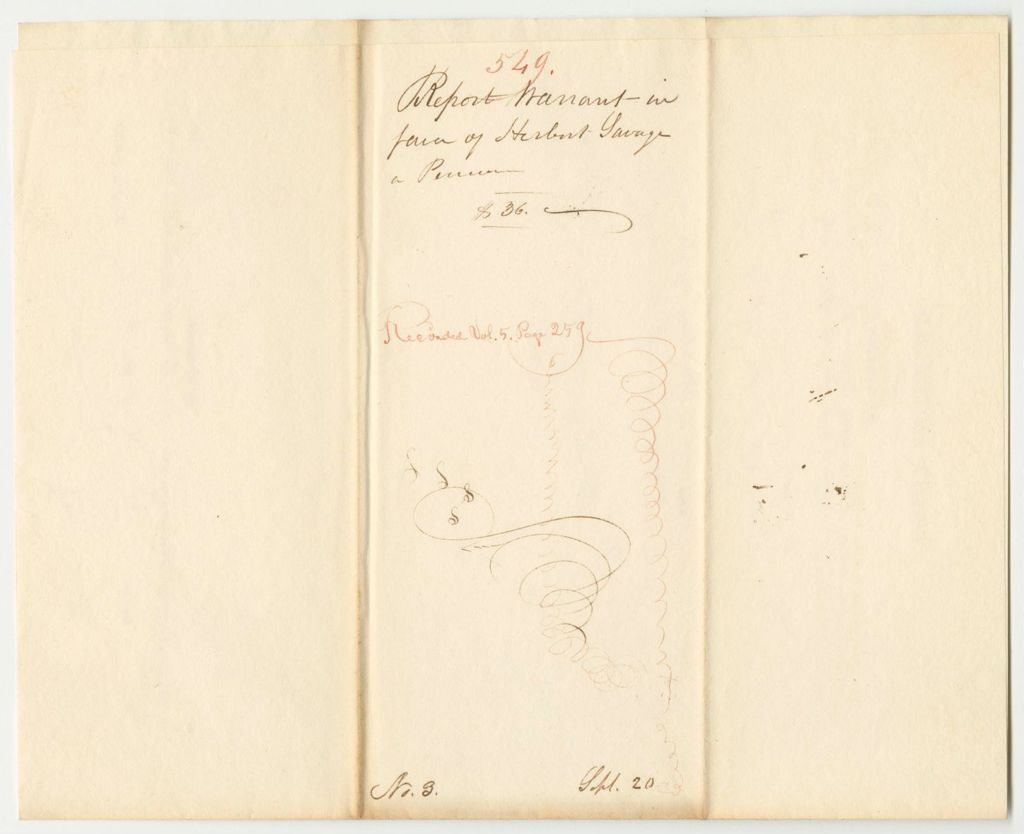 549.
Report Warrant in
favor of Herbert Savage
a
$ 36.
Recorded Vol. 5. Page 259
No. 3.
Sept. 20